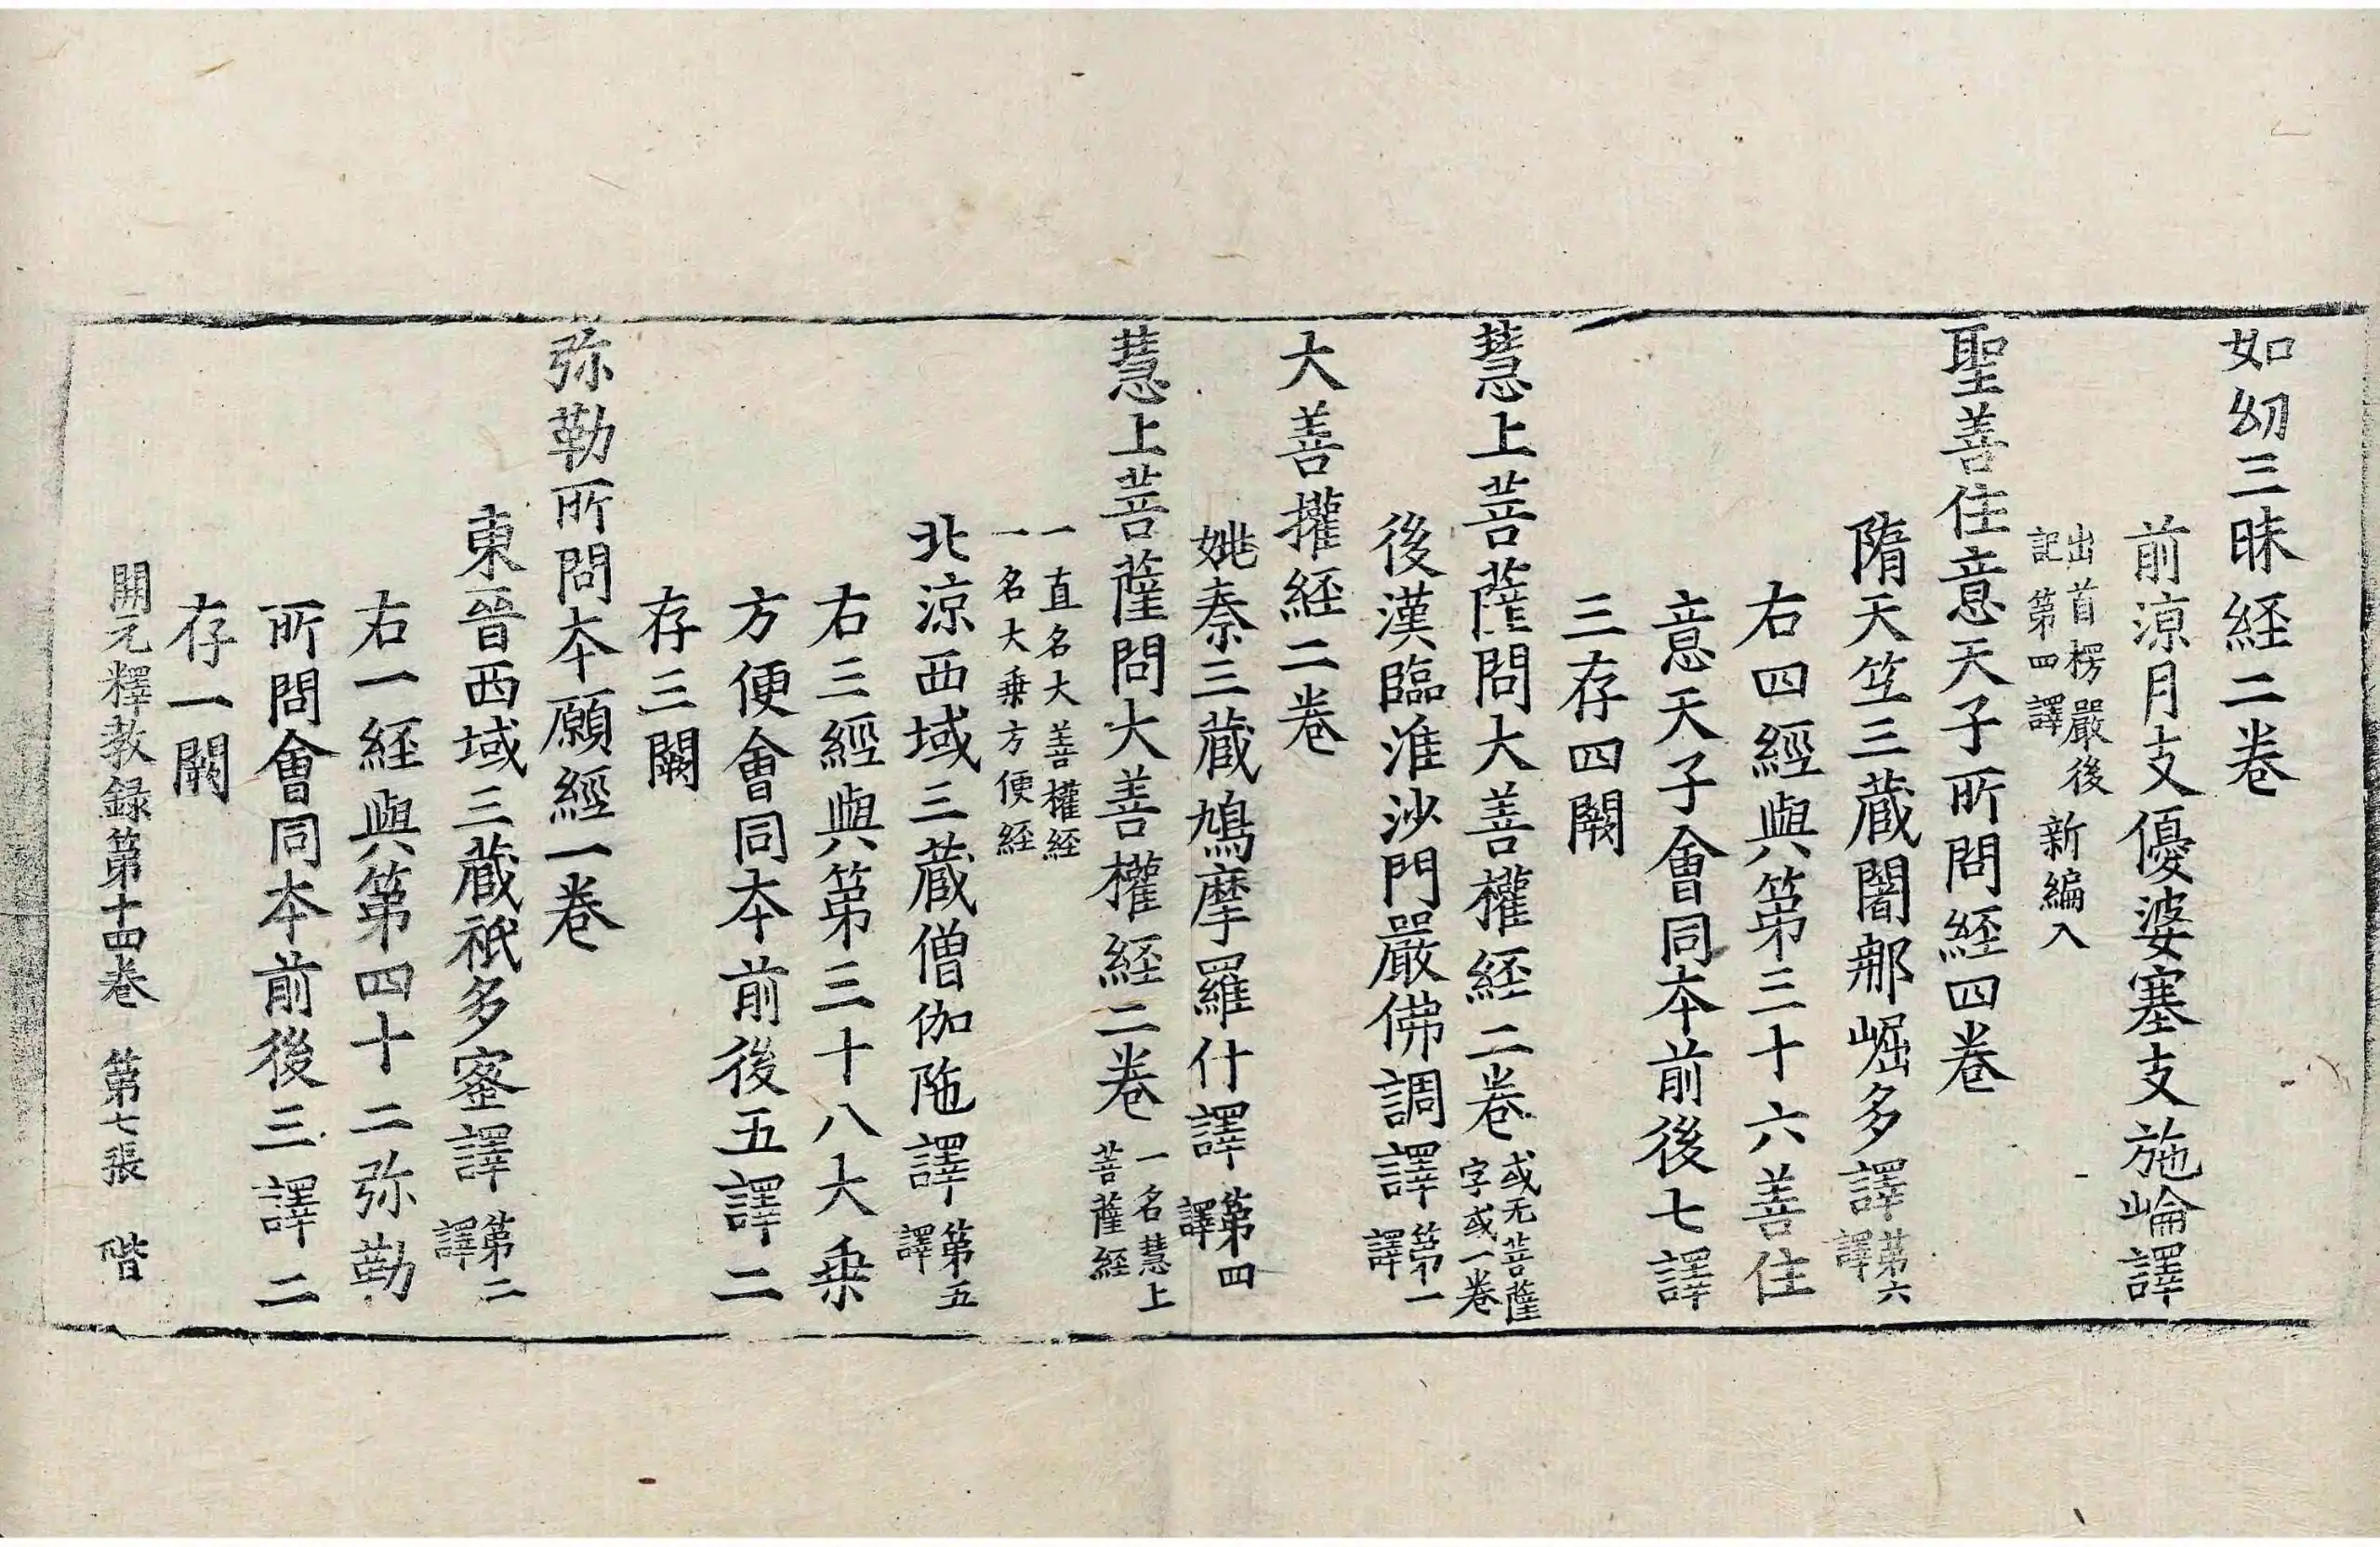 如幻三昧経二卷
前涼月支優婆塞支施崘譯
出首楞嚴後
記第四譯
新編入
聖善住意天子所問経四卷
隋天竺三蔵闍那崛多譯第六譯
右四經與第三十六善住
意天子會同本前後七譯
三存四闕
慧上菩薩問大善權経二卷或无菩薩字或一卷
後漢臨淮沙門嚴佛調譯第一譯
大善權経二卷
姚秦三蔵鳩摩羅什譯第四譯
慧上菩薩問大善權経二卷一名慧上菩薩経
一直名大善權経
一名大乗方便経
北涼西域三蔵僧伽陁譯第五譯
右三經與第三十八大乗
方便會同本前後五譯二
存三闕
弥勒所問本願經一卷
東晉西域三蔵祇多蜜譯第二譯
右一経與第四十二弥勒
所問會同本前後三譯二
存一闕
開元釋教録第十四卷　第七張　階